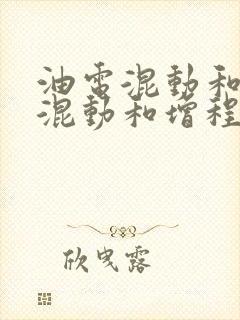 油电混動和
混動和增程
欣曳露